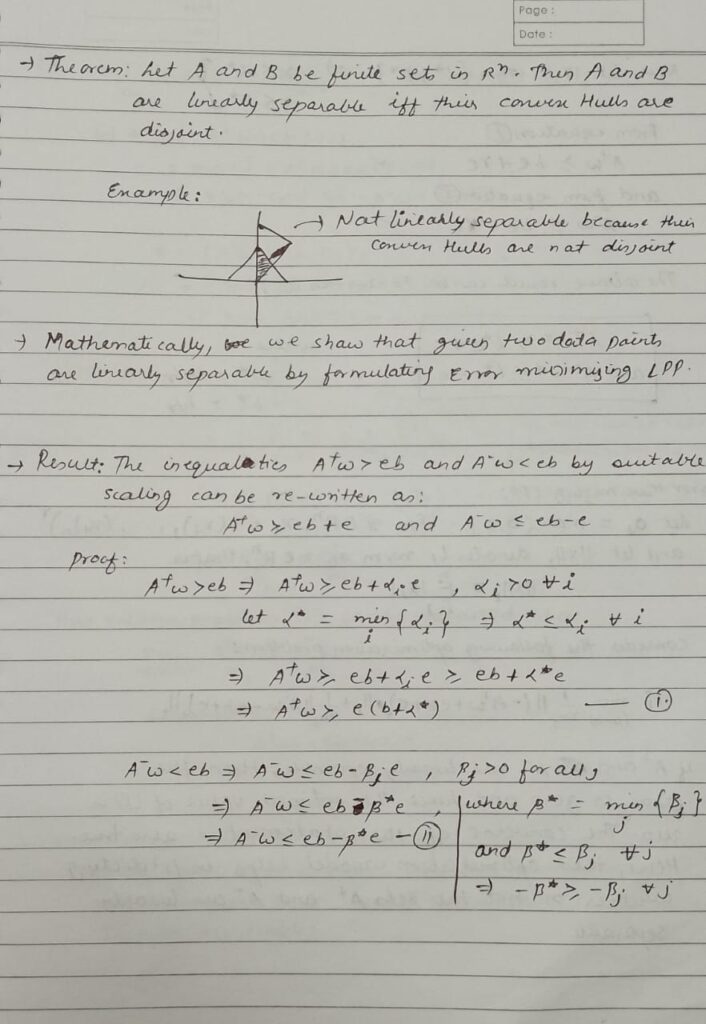 Page :
Date :
→ Theorem: Let A and B be finite sets in Rⁿ. Then A and B
are linearly separable iff their convex Hulls are
disjoint.
Example:
→ Not linearly separable because their
Convex Hulls are not disjoint
→ Mathematically, we we show that given two data points
are linearly separable by formulating Error minimizing LPP.
→ Result: The inequalities A⁺w > eb and A⁻w < eb by suitable
scaling can be re-written as:
A⁺w ≥ eb + e and A⁻w ≤ eb - e
Proof:
A⁺w > eb ⇒ A⁺w ≥ eb + αᵢ.e , αᵢ > 0 ∀ i
let α* = min {αᵢ} ⇒ α* ≤ αᵢ ∀ i
i
⇒ A⁺w ≥ eb + αᵢe ≥ eb + α*e
⇒ A⁺w ≥ e(b + α*) — (i)
A⁻w < eb ⇒ A⁻w ≤ eb - βⱼe , βⱼ > 0 for all j
⇒ A⁻w ≤ eb - β*e , where β* = min {βⱼ}
j
⇒ A⁻w ≤ eb - β*e — (ii) and β* ≤ βⱼ ∀ j
⇒ -β* ≥ -βⱼ ∀ j